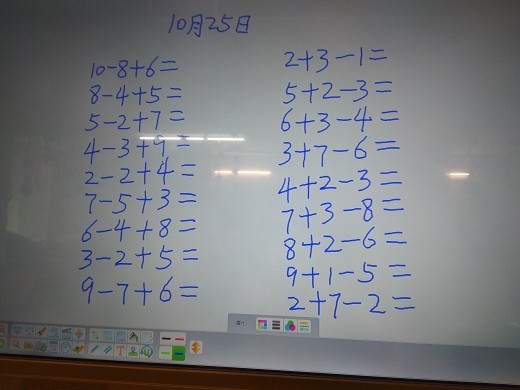 10月25日
10-8+6=
8-4+5=
5-2+7=
4-3+9=
2-2+4=
7-5+3=
6-4+8=
3-2+5=
9-7+6=
2+3-1=
5+2-3=
6+3-4=
3+7-6=
4+2-3=
7+3-8=
8+2-6=
9+1-5=
2+7-2=